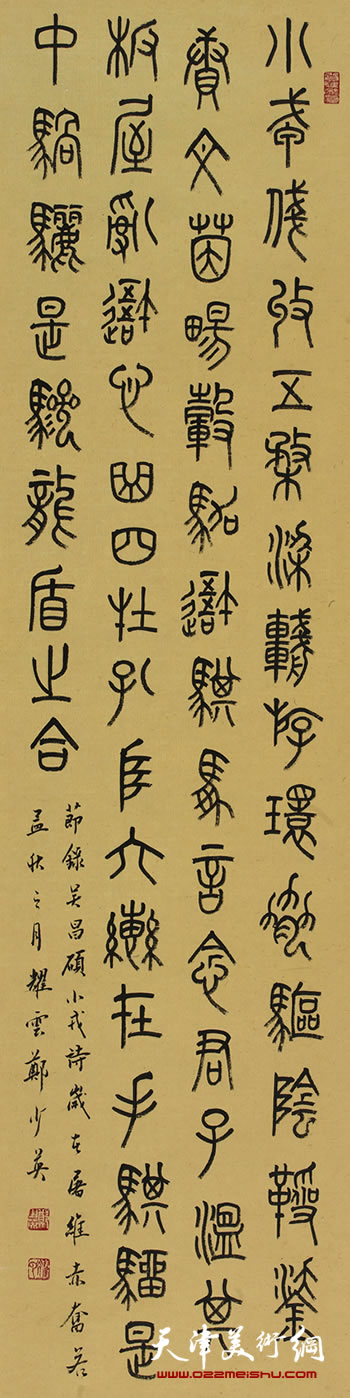 小戎俴收五楘梁輈游環脅驅陰靷鋈
續文茵暢轂駕吾騏馵言念君子溫其
板屋亂吾心曲四牡孔阜六轡在手騏騮是
中騧驪是驂龍盾之合
節錄吳昌碩小戎詩歲在屠維赤奮若
孟秋之月耀雲鄭少英
天津美術網
www.022meishu.com